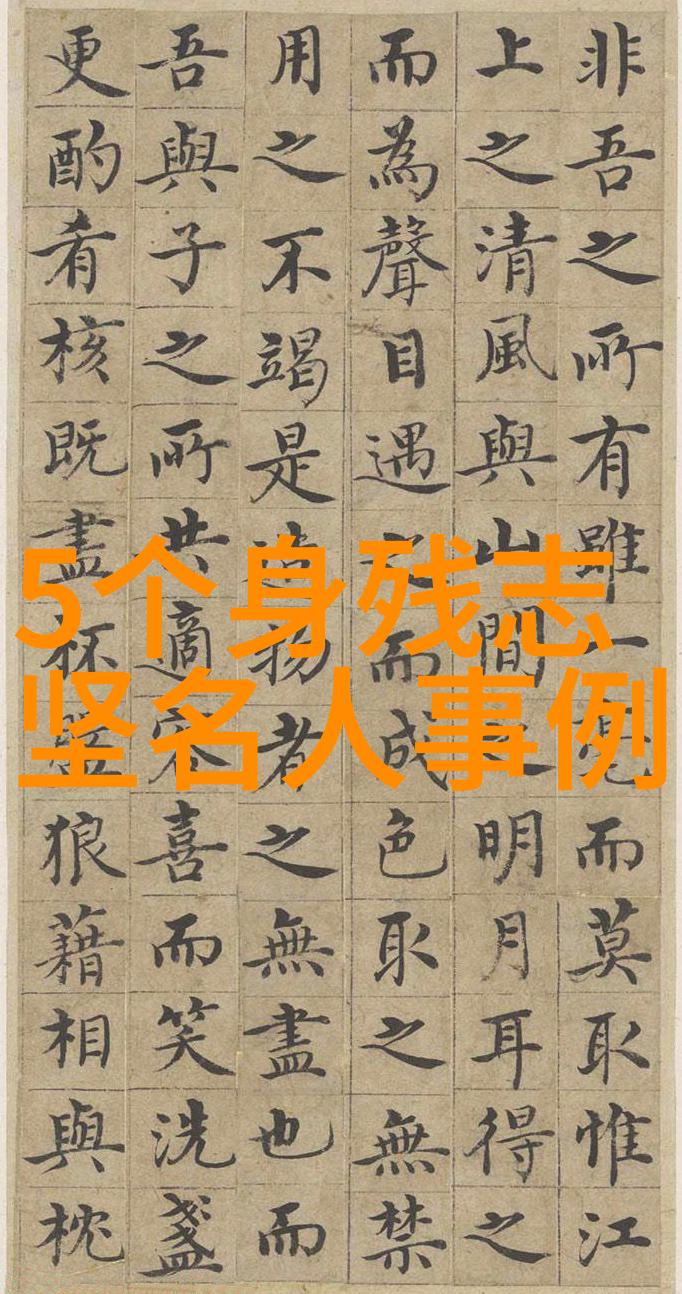 5个身残志
坚名人事例
非吾之所有雖一毫而莫取惟江
上之清風與山間之明月耳得之
而為聲目遇之而成色取之無禁
用之不竭是造物者之無盡也而
吾與子之所共適客喜而笑洗盞
更酌肴核既盡杯盤狼藉相與枕